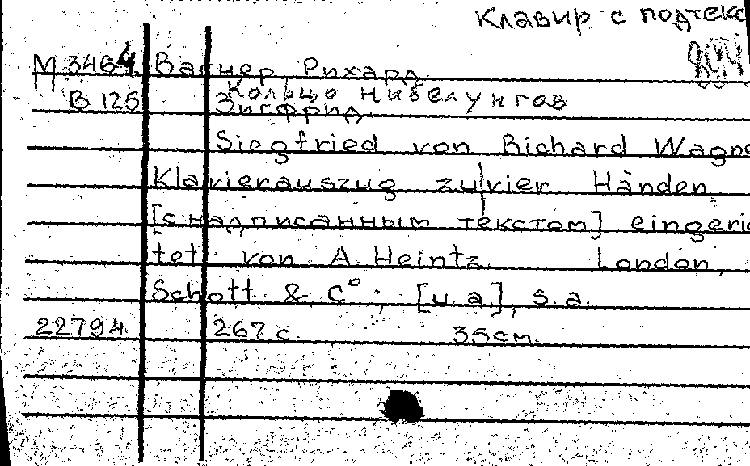 Клавир с подтекс
М 3464 Вагнер, Рихард
В 125 Кольцо Нибелунгов
Зигфрид.
Siegfried von Richard Wagne
Klavierauszug zu vier Händen
[с надписанным текстом] eingeric
tet von A. Heintz. London,
Schott & C°; [u.a], s.a.
22794 267 с. 35 см.